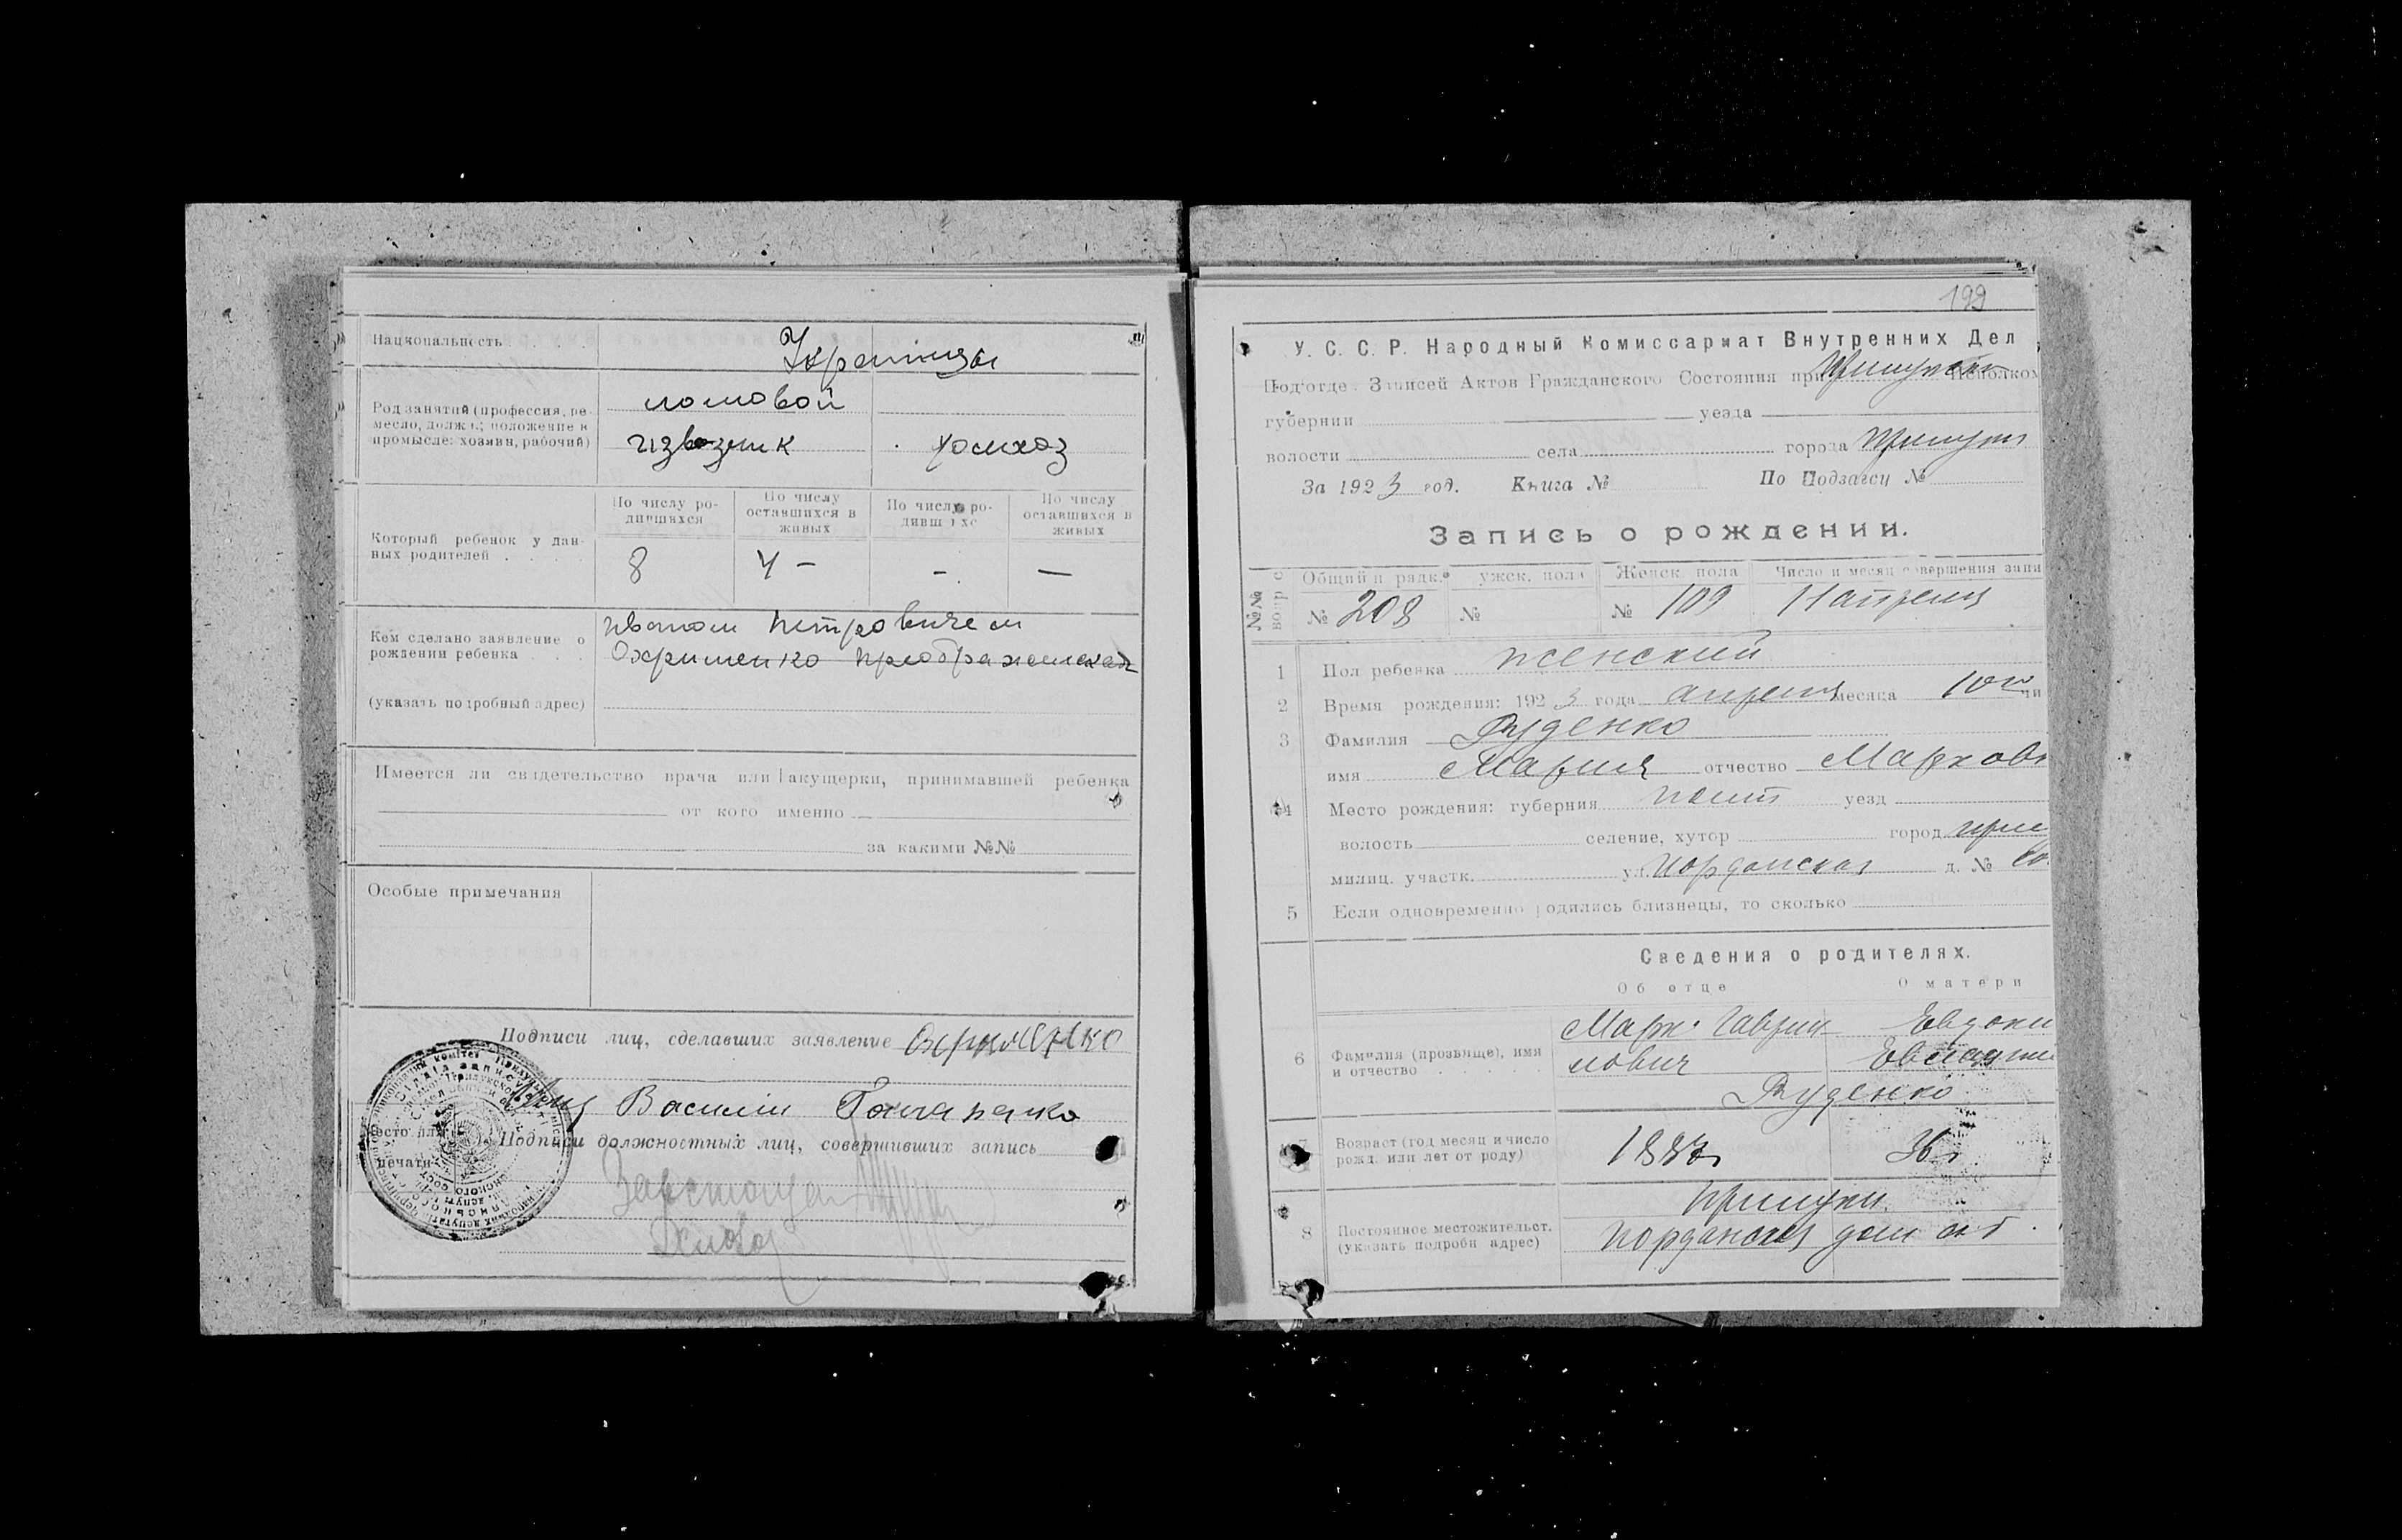 Национальность
Украинцы
Род занятий (профессия, ре-
месло, должн.; положение в
промысле: хозяин, рабочий)
ломовой
извозчик
домхоз
Который ребенок у дан-
ных родителей
По числу ро-
дившихся
По числу
оставшихся в
живых
По числу ро-
дившихс
По числу
оставшихся в
живых
8 4 – – —
Кем сделано заявление о
рождении ребенка
(указать подробный адрес)
Иваном Петровичем
Охрименко Преображенская
Имеется ли свидетельство врача или акушерки, принимавшей ребенка
от кого именно
за какими №№
Особые примечания
Подписи лиц, сделавших заявление Охрименко
Василий
Место для
печати
Подписи должностных лиц, совершивших запись
199
У. С. С. Р. Народный Комиссариат Внутренних Дел
Под'отдел Записей Актов Гражданского Состояния при Исполком
губернии уезда
волости села города Прилуки
За 1923 год. Книга № По Подзагсу №
Запись о рождении.
№№ вопрос
Общий п рядк. ужск. пола Женск. пола Число и месяц совершения запи
№ 208 № № 109 11 апреля
1 Пол ребенка женский
2 Время рождения: 1923 года апреля месяца 10 чи
3 Фамилия Руденко
имя Мария отчество Марков
4 Место рождения: губерния Полт уезд
волость селение, хутор город При
милиц. участк. ул. Иорданская д. № со
5 Если одновременно родились близнецы, то сколько
Сведения о родителях.
Об отце О матери
6 Фамилия (прозвище), имя
и отчество
Марк Гаврии-
лович
Евдоки
Руденко
7 Возраст (год месяц и число
рожд. или лет от роду)
36 л
8 Постоянное местожительст.
(указать подробн адрес)
Прилуки
Иорданская дом соб